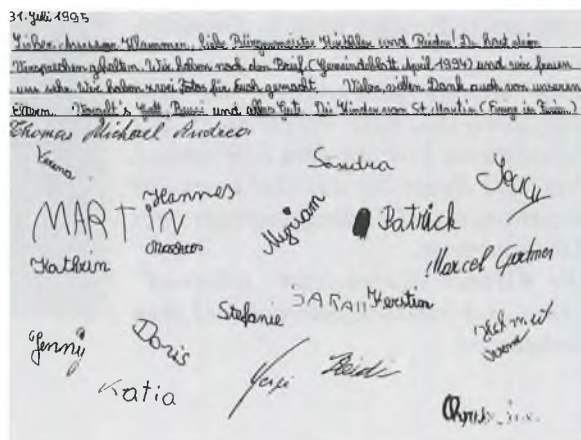 31. Juli 1995
Lieber Assessor Klammer, liebe Bürgermeister und Rieder! Du hast dein
Versprechen gehalten. Wir haben noch den Brief (Gemeindeblatt April 1994) und wir freuen
uns sehr. Wir haben zwei Fotos für Euch gemacht. Vielen, vielen Dank auch von unseren
Eltern. Vergelt's Gott, Bussi und alles Gute. Die Kinder von St. Martin
Thomas Michael Andreas
Verena
Sandra
Jenny
Hannes
MARTIN
Myriam
Patrick
Kathrin
Marcel Gartner
SARAH Kerstin
Stefanie
Jenny
Doris
Helmut
Heidi
Katia